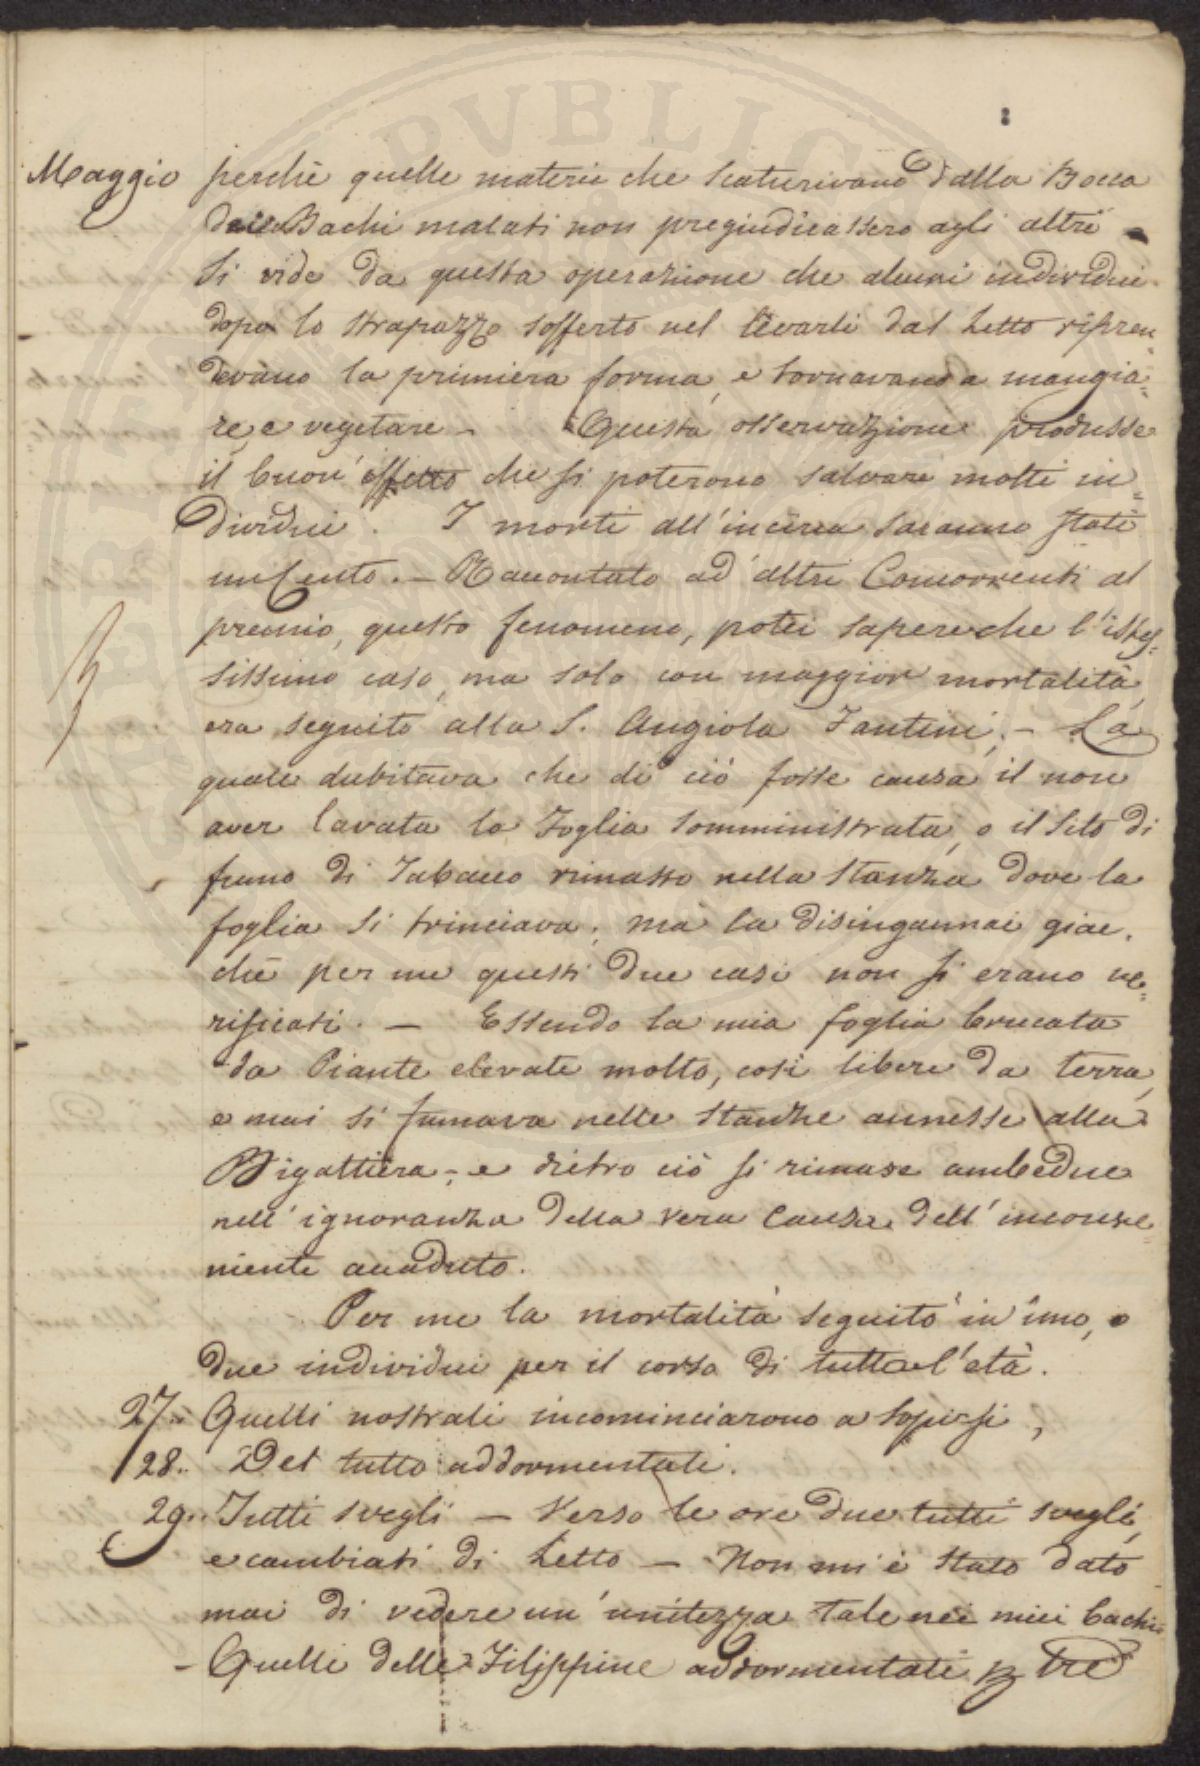 Maggio perchè quelle materie che scaturivano dalla Bocca
dei Bachi malati non pregiudicassero agli altri
Si vide da questa operazione che alcuni individui
dopo lo strapazzo sofferto nel levarli dal Letto ripren=
devano la primiera forma, e tornavano a mangia=
re, e vegetare - Questa osservazione produsse
il buon' effetto che si poterono salvare molti in=
dividui. I morti all'incirca saranno stati
un Cento. - Raccontato ad' altri Concorrenti al
premio, questo fenomeno, potei sapere che l'istes=
sissimo caso, ma solo con maggior mortalità,
era seguito alla S. Angiola Fantini; - La
quale dubitava che di ciò fosse causa il non
aver lavata la Foglia somministrata, o il Sito di
fumo di Tabacco rimasto nella stanza dove la
foglia si trinciava; ma la disingannai giac.
chè per me questi due casi non si erano ve=
rificati. - Essendo la mia foglia brucata
da Piante elevate molto, così libere da terra,
e mai si fumava nelle stanze annesse alla
Bigattiera; e dietro ciò si rimase ambedue
nell' ignoranza della vera Causa dell' inconve=
niente accaduto.
Per me la mortalità seguitò in uno, o
due individui per il corso di tutta l'età.
27.. Quelli nostrali incominciarono a sopirsi,
28.. Del tutto addormentati.
29.. Tutti svegli - Verso le ore due tutti svegli,
e cambiati di Letto - Non mi è stato dato
mai di vedere un' unitezza tale nei miei bachi
- Quelli delle Filippine addormentati p tre
PVBLICA